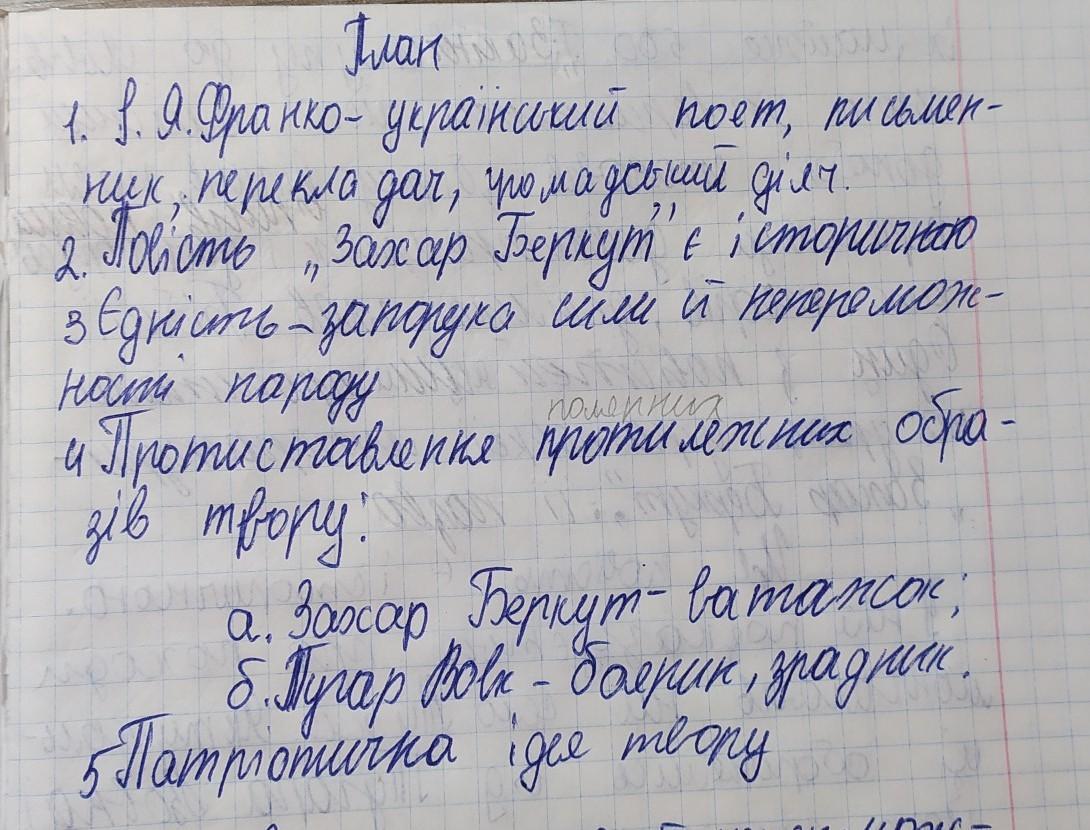 План
1. І. Я. Франко - український поет, письмен-
ник, перекладач, громадський діяч.
2. Повість „Захар Беркут" є історичною
3 Єдність - запорука сили й неперемож-
ності народу
полярних
4 Протиставлення протилежних обра-
зів твору:
а. Захар Беркут - ватажок;
б. Тугар Вовк - боярин, зрадник.
5 Патріотична ідея твору